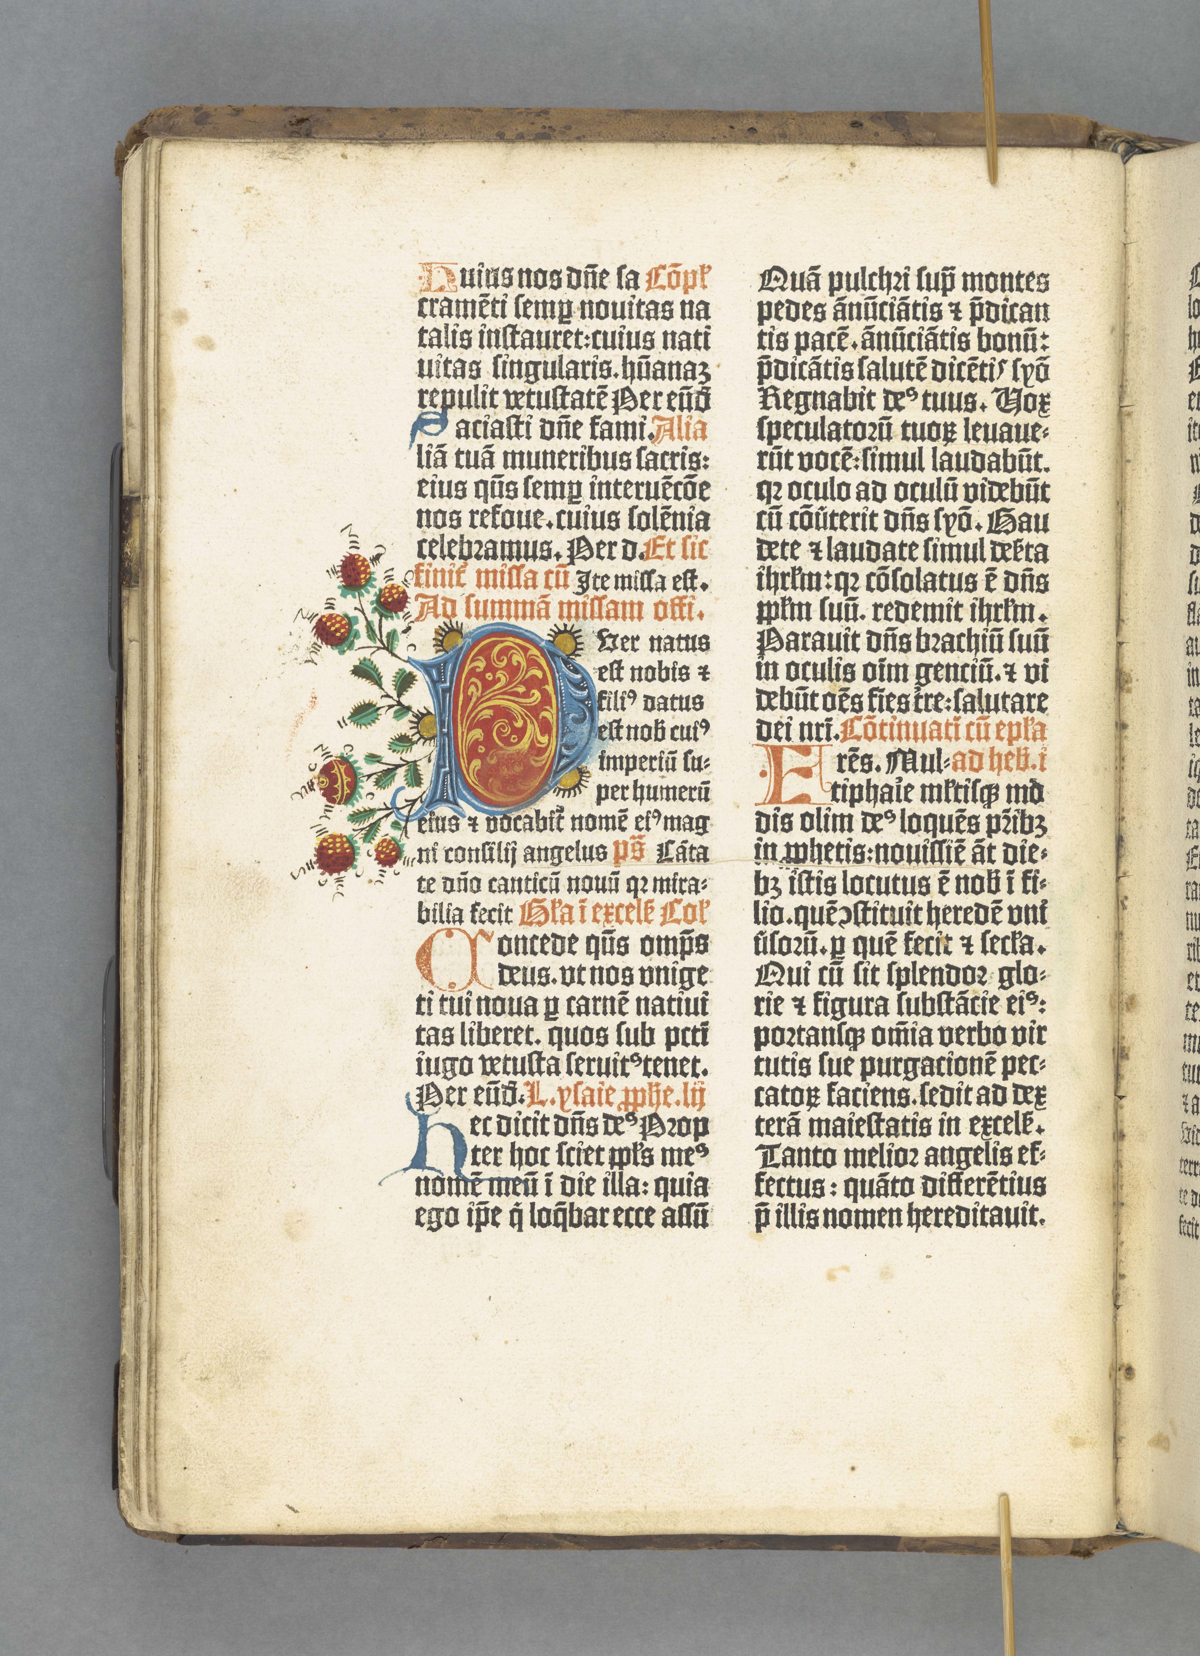 Huius nos dñe sa Cōpł
cramēti semꝑ novitas na
talis instauret: cuius nati
uitas singularis. hūanaꝫ
repulit vetustatē Per eūd̄
Saciasti dñe fami. Alia
liā tuā muneribus sacris:
eius qūs semꝑ interuēcōe
nos refoue. cuius solēnia
celebramus. Per d. Et sic
finit᷑ missa cū Ite missa est.
Ad summā missam offi.
Puer natus
est nobis ⁊
filiꝰ datus
est nob̄ cuiꝰ
imperiū su-
per humerū
eius ⁊ vocabit᷑ nomē eiꝰ mag
ni consilij angelus ps̄ Cāta
te dño canticū nouū qꝛ mira-
bilia fecit Gła ī excels̄ Coł
Concede qūs omp̄s
deus. vt nos vnige
ti tui noua ꝑ carnē natiui
tas liberet. quos sub pctī
iugo vetusta seruitꝰ tenet.
Per eūd̄. L. ysaie ꝓphe. lij
hec dicit dñs deꝰ Prop
ter hoc sciet ppłs meꝰ
nomē meū ī die illa: quia
ego ip̄e q̇ loq̄bar ecce assū
Quā pulchri sup̄ montes
pedes ānūciātis ⁊ p̄dican
tis pacē. ānūciātis bonū:
p̄dicātis salutē dicētis syō
Regnabit deꝰ tuus. Vox
speculatorū tuoꝝ leuaue-
rūt vocē: simul laudabūt.
qꝛ oculo ad oculū videbūt
cū cōūterit dñs syō. Gau
dete ⁊ laudate simul deẜta
ihrłm: qꝛ cōsolatus ē dñs
ppłm suū. redemit ihrłm.
Parauit dñs brachiū suū
in oculis oīm genciū. ⁊ vi
debūt oēs fies t̄re: salutare
dei nrī. Cōtinuatī cū epła
Frēs. Mul- ad heb̄. i
tipharīe młtisqꝫ mō
dis olim deꝰ loquēs pr̄ibꝫ
in ꝓphetis: nouissīe āt die-
bꝫ istis locutus ē nob̄ ī fi-
lio. quē ꝯstituit heredē vni
ūsorū. ꝑ quē fecit ⁊ secła.
Qui cū sit splendor glo-
rie ⁊ figura substācie eiꝰ:
portansqꝫ om̄ia verbo vir
tutis sue purgacionē pec-
catoꝝ faciens. sedit ad dex
terā maiestatis in excels̄.
Tanto melior angelis ef-
fectus: quāto differētius
p̄ illis nomen hereditauit.